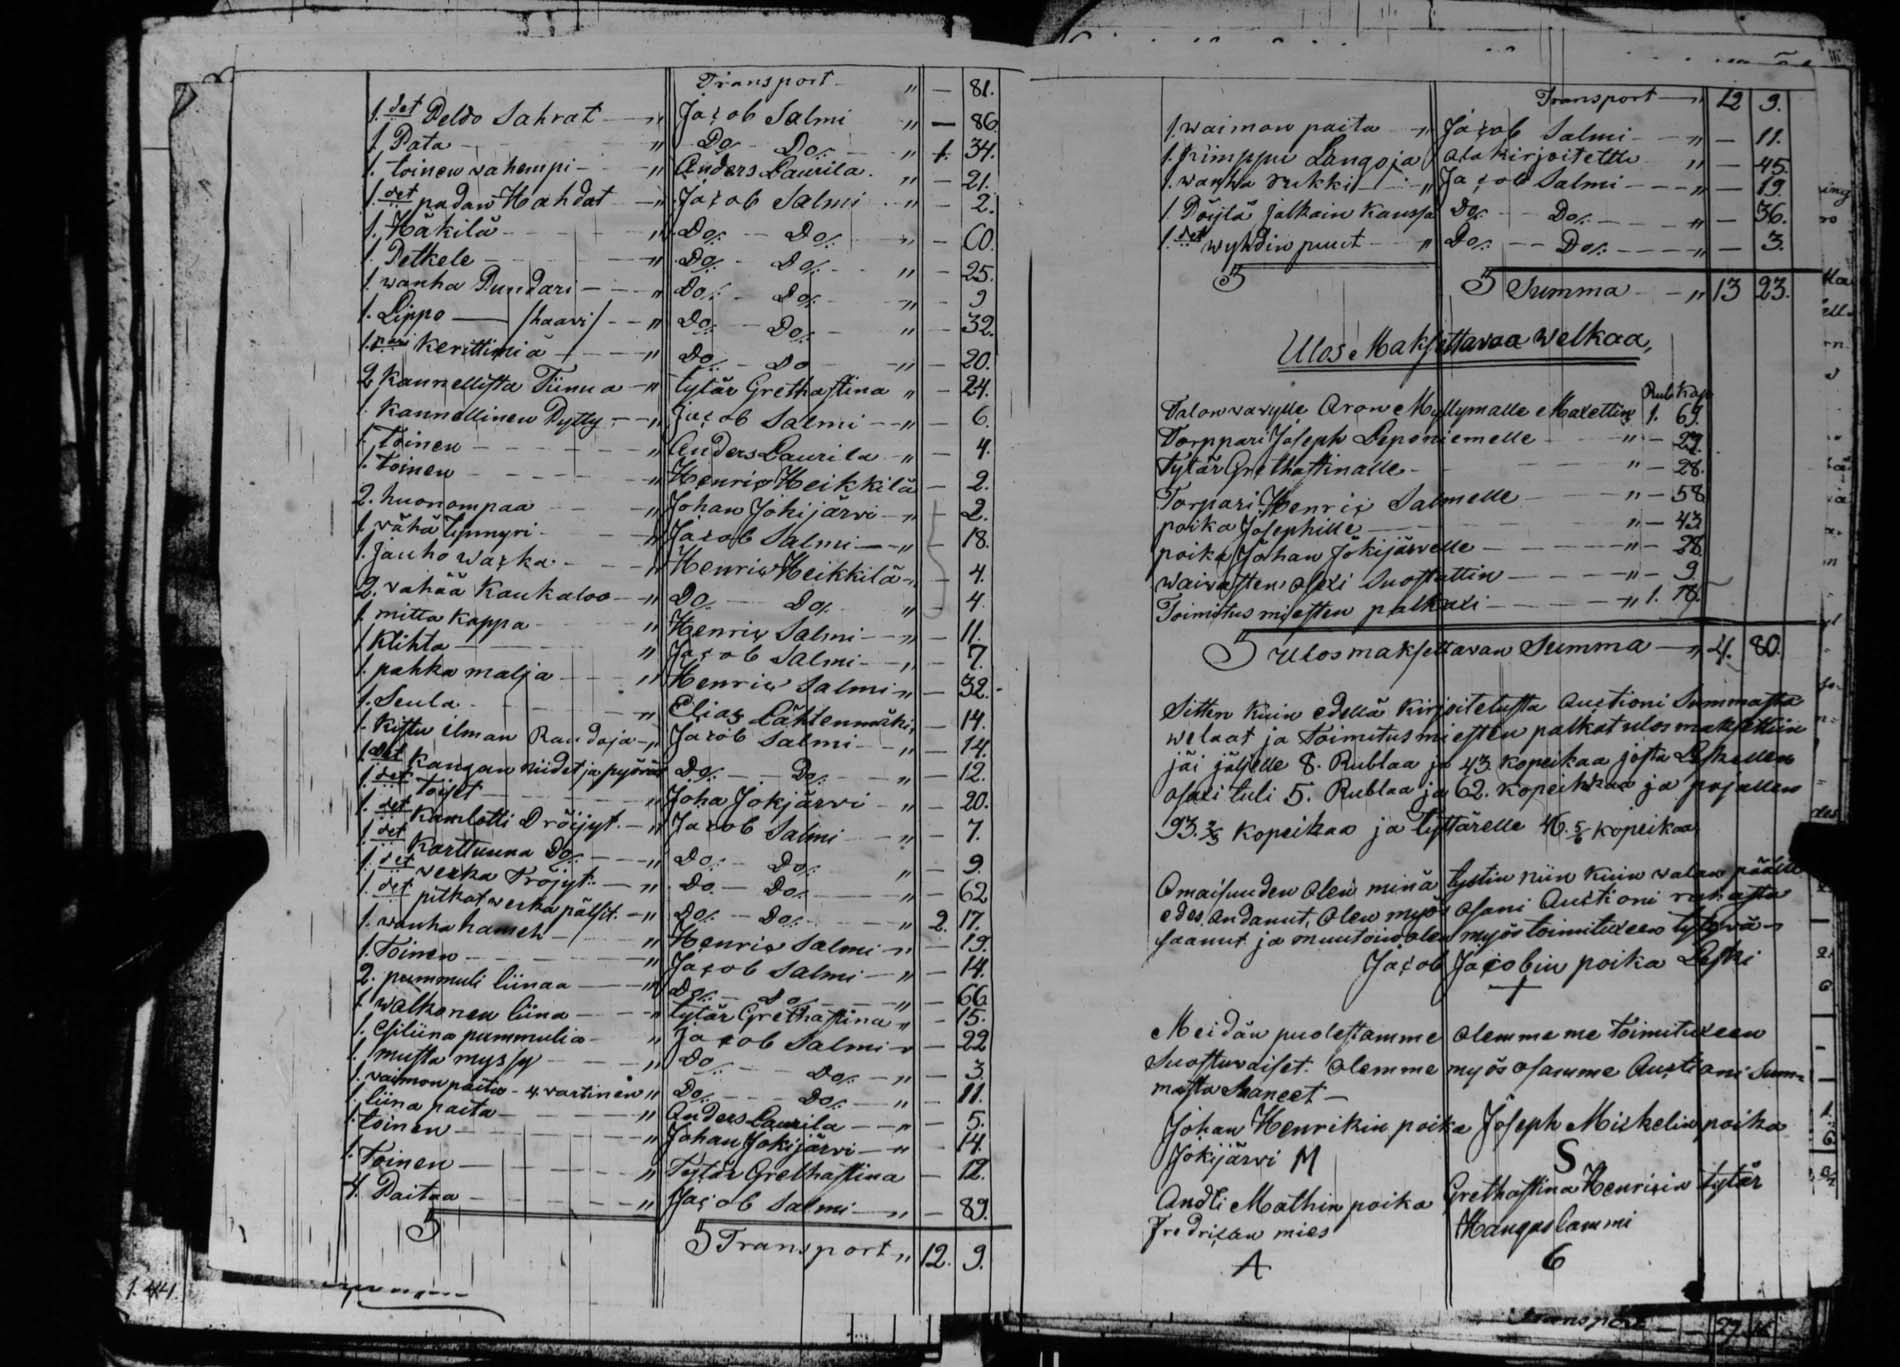 Transport — " — 81.
1. det Peldo Sahrat — " Jacob Salmi " — 86.
1. Pata — " Do. Do. " 1. 34.
1. toinen vähempi — " Anders Laurila " — 21.
1. det padan Hahdat — " Jacob Salmi " — 2.
1. Häkilä — " Do. — Do. " — 60.
1. Petkele — " Do. — Do. " — 25.
1. wanha Pundari — " Do. — Do. " — 9
1. Lippo — /haavi/ — " Do. — Do. " — 32.
1. pari Kerittimiä — " Do — Do " — 20.
2. Kannellista Tiinua — " tytär Grethastina " — 24.
1. Kannellinen Pytty — " Jacob Salmi — " — 6.
1. Toinen — " Anders Laurila " — 4.
1. toinen — " Henric Heikkilä — 2.
2. huonompaa — " Johan Jokijärvi — " — 2.
1. vähä tynnyri — " Jacob Salmi — " — 18.
1. Jauho wacka — " Henric Heikkilä " — 4.
2. vähää Kaukaloo — " Do. — Do. " — 4.
1. mitta Kappa — " Henric Salmi — " — 11.
1. Klihta — " Jacob Salmi — " — 7.
1. pahka malja — " Henric Salmi " — 32.
1. Seula — " Elias Lähtenmäki — 14.
1. Kistu ilman Raudoja — " Jacob Salmi — " — 14.
1. det Kangan niidet ja pyörät Do. — Do. " — 12.
1. det Toiset — " Joha Jokjärvi — " — 20.
1. det Kamlotti Dröijyt — " Jacob Salmi — " — 7.
1. det Karttuuna Do. — " Do. — Do. " — 9.
1. det verka Tröjyt — " Do — Do. " — 62
1. det pitkat werka pälsit — " Do. — Do. " 2. 17.
1. wanha hameh — " Henric Salmi — " — 19.
1. Toinen — " Jacob Salmi — " — 14.
2. pummuli liinaa — " Do. — Do. " — 66
1. walkonen liina — " tytär Grethastina " — 15.
1. Esiliina pummulia — " Jacob Salmi — " — 22
1. musta myssy — " Do — Do. — " — 3
1. vaimon paita - 4. vartinen " Do. — Do. — " — 11.
1. liina paita — " Anders Laurila — " — 5.
1. toinen — " Johan Jokijärvi — " — 14.
1. Toinen — " Tytär Grethastina — 12.
4. Paitaa — " Jacob Salmi — " — 89.
Transport " 12. 9.
1.441.
Transport — " 12 9.
1. waimon paita — " Jacob Salmi — " — 11.
1. Kimppu Langoja Alakirjoitettu " — 45.
1. wanha rukki — " Jacob Salmi — " — 19.
1. Pöytä jalkain Kanssa Do. — Do. — " — 36.
1. det wyhdin puut — " Do. — Do. — " — 3.
Summa — " 13 23.
Ulos Maksettavaa Welkaa,
Rub. Kop
Talon vavylle Aron Myllymalle Maxettin 1. 69.
Torppari Joseph Leponiemelle — " — 29.
Tytär Grethastinalle — " — 28.
Torpari Henric Salmelle — " — 58
poika Josephille — " — 43
poika Johan Jokijärvelle — " — 28
waivasten osaxi suostuttin — " — 9
Toimitus miesten palkaxi — " 1. 18.
Ulosmaksettavan Summa — " 4. 80.
Sitten Kuin edellä Kirjoitetusta Auctioni Summasta
welaat ja Toimitusmiesten palkat ulosmaksettiin
jäi jäljelle 8. Rublaa ja 43. kopeikaa josta Leskellen
osaxi tuli 5. Rublaa ja 62. kopeikkaa ja pojallen
93. 2/3 kopeikaa ja tyttärelle 46. 5/6 kopeikaa
Omaisuuden olen minä lystin niin kuin walan päälle
edes andanut, olen myös osani Auctioni rahasta
saanut ja muutoin olen myös toimituxeen tytyvä —
Jacob Jacobin poika Leski
Meidän puolestamme olemme me toimituxeen
Suostuvaiset. Olemme myös osamme Auctioni Sum=
masta Saaneet —
Johan Henrikin poika Joseph Mickelin poika
Jokijärvi M S
Andli Mathin poika Grethastina Henricin tytär
Fredrican mies Kangaslammi
A 6
Transport